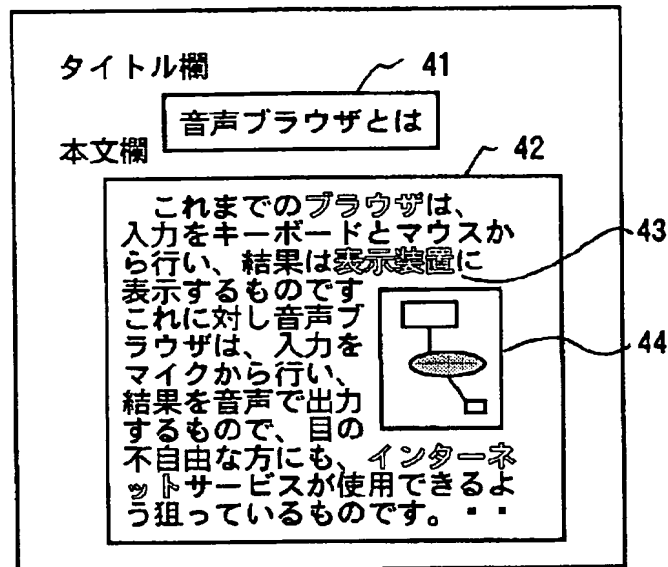 タイトル欄
41
音声ブラウザとは
本文欄
42
これまでのブラウザは、
入力をキーボードとマウスか
ら行い、結果は表示装置に
43
表示するものです
これに対し音声ブ
ラウザは、入力を
44
マイクから行い、
結果を音声で出力
するもので、目の
不自由な方にも、インターネ
ットサービスが使用できるよ
う狙っているものです。・・